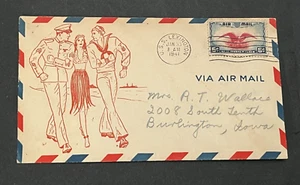 U.S.S. LEXINGTON
1941
VIA AIR MAIL
Mrs. A. T. Wallace
2008 South Tenth
Burlington, Iowa